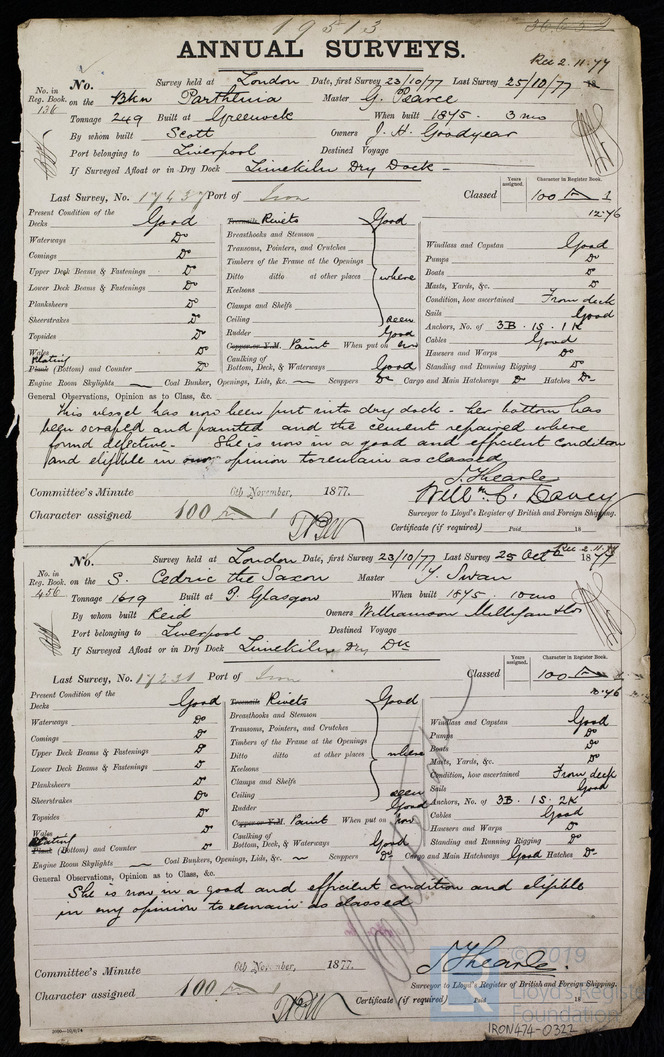 19513
ANNUAL SURVEYS.
Rec 2.11.77
No. Survey held at London Date, first Survey 23/10/77 Last Survey 25/10/77 18
No. in Reg. Book. 136 on the Bkn Parthenia Master G. Pearce
Tonnage 249 Built at Greenock When built 1875 - 3 mo
By whom built Scott Owners J. H. Goodyear
Port belonging to Liverpool Destined Voyage
If Surveyed Afloat or in Dry Dock Limekiln Dry Dock -
Last Survey, No. 17437 Port of Iron Classed
Years assigned. Character in Register Book.
100 A 1
12.76
Present Condition of the
Decks Good
Waterways Do
Comings Do
Upper Deck Beams & Fastenings Do
Lower Deck Beams & Fastenings Do
Planksheers Do
Sheerstrakes Do
Topsides Do
Wales Do
Plating
Plank (Bottom) and Counter Do
Treenails Rivets Good
Breasthooks and Stemson
Transoms, Pointers, and Crutches
Timbers of the Frame at the Openings
Ditto ditto at other places where
Keelsons
Clamps and Shelfs
Ceiling seen
Rudder Good
Copper or Y.M. Paint When put on now
Caulking of
Bottom, Deck, & Waterways Good
Windlass and Capstan Good
Pumps Do
Boats Do
Masts, Yards, &c. Do
Condition, how ascertained From deck
Sails Good
Anchors, No. of 3B. 1S. 1K
Cables Good
Hawsers and Warps Do
Standing and Running Rigging Do
Engine Room Skylights — Coal Bunker, Openings, Lids, &c. ~ Scuppers Do Cargo and Main Hatchways Do Hatches Do
General Observations, Opinion as to Class, &c.
This vessel has now been put into dry dock - her bottom has
been scraped and painted and the cement repaired where
found defective - She is now in a good and efficient condition
and eligible in opinion to remain as classed
J. Thearle
Willm C. Davey
Surveyor to Lloyd's Register of British and Foreign Shipping.
Committee's Minute 6th November, 1877.
Character assigned 100 A 1
Certificate (if required) Paid 18
Rec 2.11.77
No. Survey held at London Date, first Survey 23/10/77 Last Survey 25 Oct 1877
No. in Reg. Book. 456 on the S. Cedric the Saxon Master Y. Swan
Tonnage 1619 Built at P. Glasgow When built 1875. 10 mo
By whom built Reid Owners Williamson Milligan & Co
Port belonging to Liverpool Destined Voyage
If Surveyed Afloat or in Dry Dock Limekiln Dry Dk
Last Survey, No. 17231 Port of Iron Classed
Years assigned. Character in Register Book.
100 A 1
Present Condition of the
Decks Good
Waterways Do
Comings Do
Upper Deck Beams & Fastenings Do
Lower Deck Beams & Fastenings Do
Planksheers Do
Sheerstrakes Do
Topsides Do
Wales Do
Plating
Plank (Bottom) and Counter Do
Treenails Rivets Good
Breasthooks and Stemson
Transoms, Pointers, and Crutches
Timbers of the Frame at the Openings
Ditto ditto at other places where
Keelsons
Clamps and Shelfs
Ceiling seen
Rudder Good
Copper or Y.M. Paint When put on now
Caulking of
Bottom, Deck, & Waterways Good
Windlass and Capstan Good
Pumps Do
Boats Do
Masts, Yards, &c. Do
Condition, how ascertained From deck
Sails Good
Anchors, No. of 3B. 1S. 2K
Cables Good
Hawsers and Warps Do
Standing and Running Rigging Do
Engine Room Skylights — Coal Bunkers, Openings, Lids, &c. ~ Scuppers Do Cargo and Main Hatchways Good Hatches Do
General Observations, Opinion as to Class, &c.
She is now in a good and efficient condition and eligible
in my opinion to remain as classed
J. Thearle.
Surveyor to Lloyd's Register of British and Foreign Shipping.
Committee's Minute 6th November, 1877.
Character assigned 100 A 1
Certificate (if required) Paid 18
© 2019
Lloyd's Register
Foundation
IRON474-0322